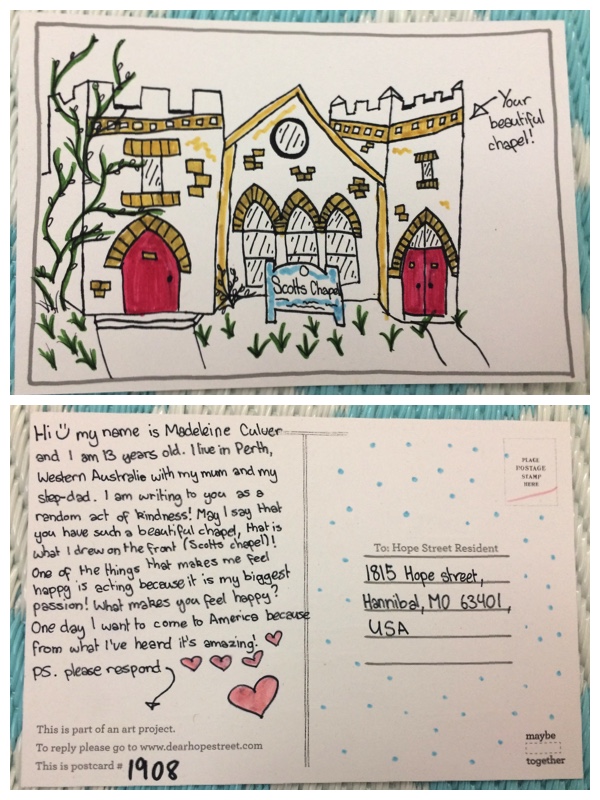 Your
beautiful
chapel!
Scotts Chapel
Hi my name is Madeleine Culver
and I am 13 years old. I live in Perth,
Western Australia with my mum and my
step-dad. I am writing to you as a
random act of kindness! May I say that
you have such a beautiful chapel, that is
what I drew on the front (Scotts chapel)!
One of the things that makes me feel
happy is acting because it is my biggest
passion! What makes you feel happy?
One day I want to come to America because
from what I've heard it's amazing!
PS. please respond
This is part of an art project.
To reply please go to www.dearhopestreet.com
This is postcard # 1908
PLACE
POSTAGE
STAMP
HERE
To: Hope Street Resident
1815 Hope street,
Hannibal, MO 63401,
USA
maybe
together